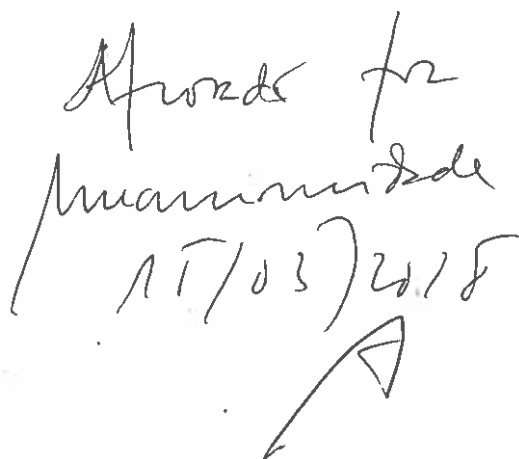 Aprovado por
unanimidade
15/03/2018